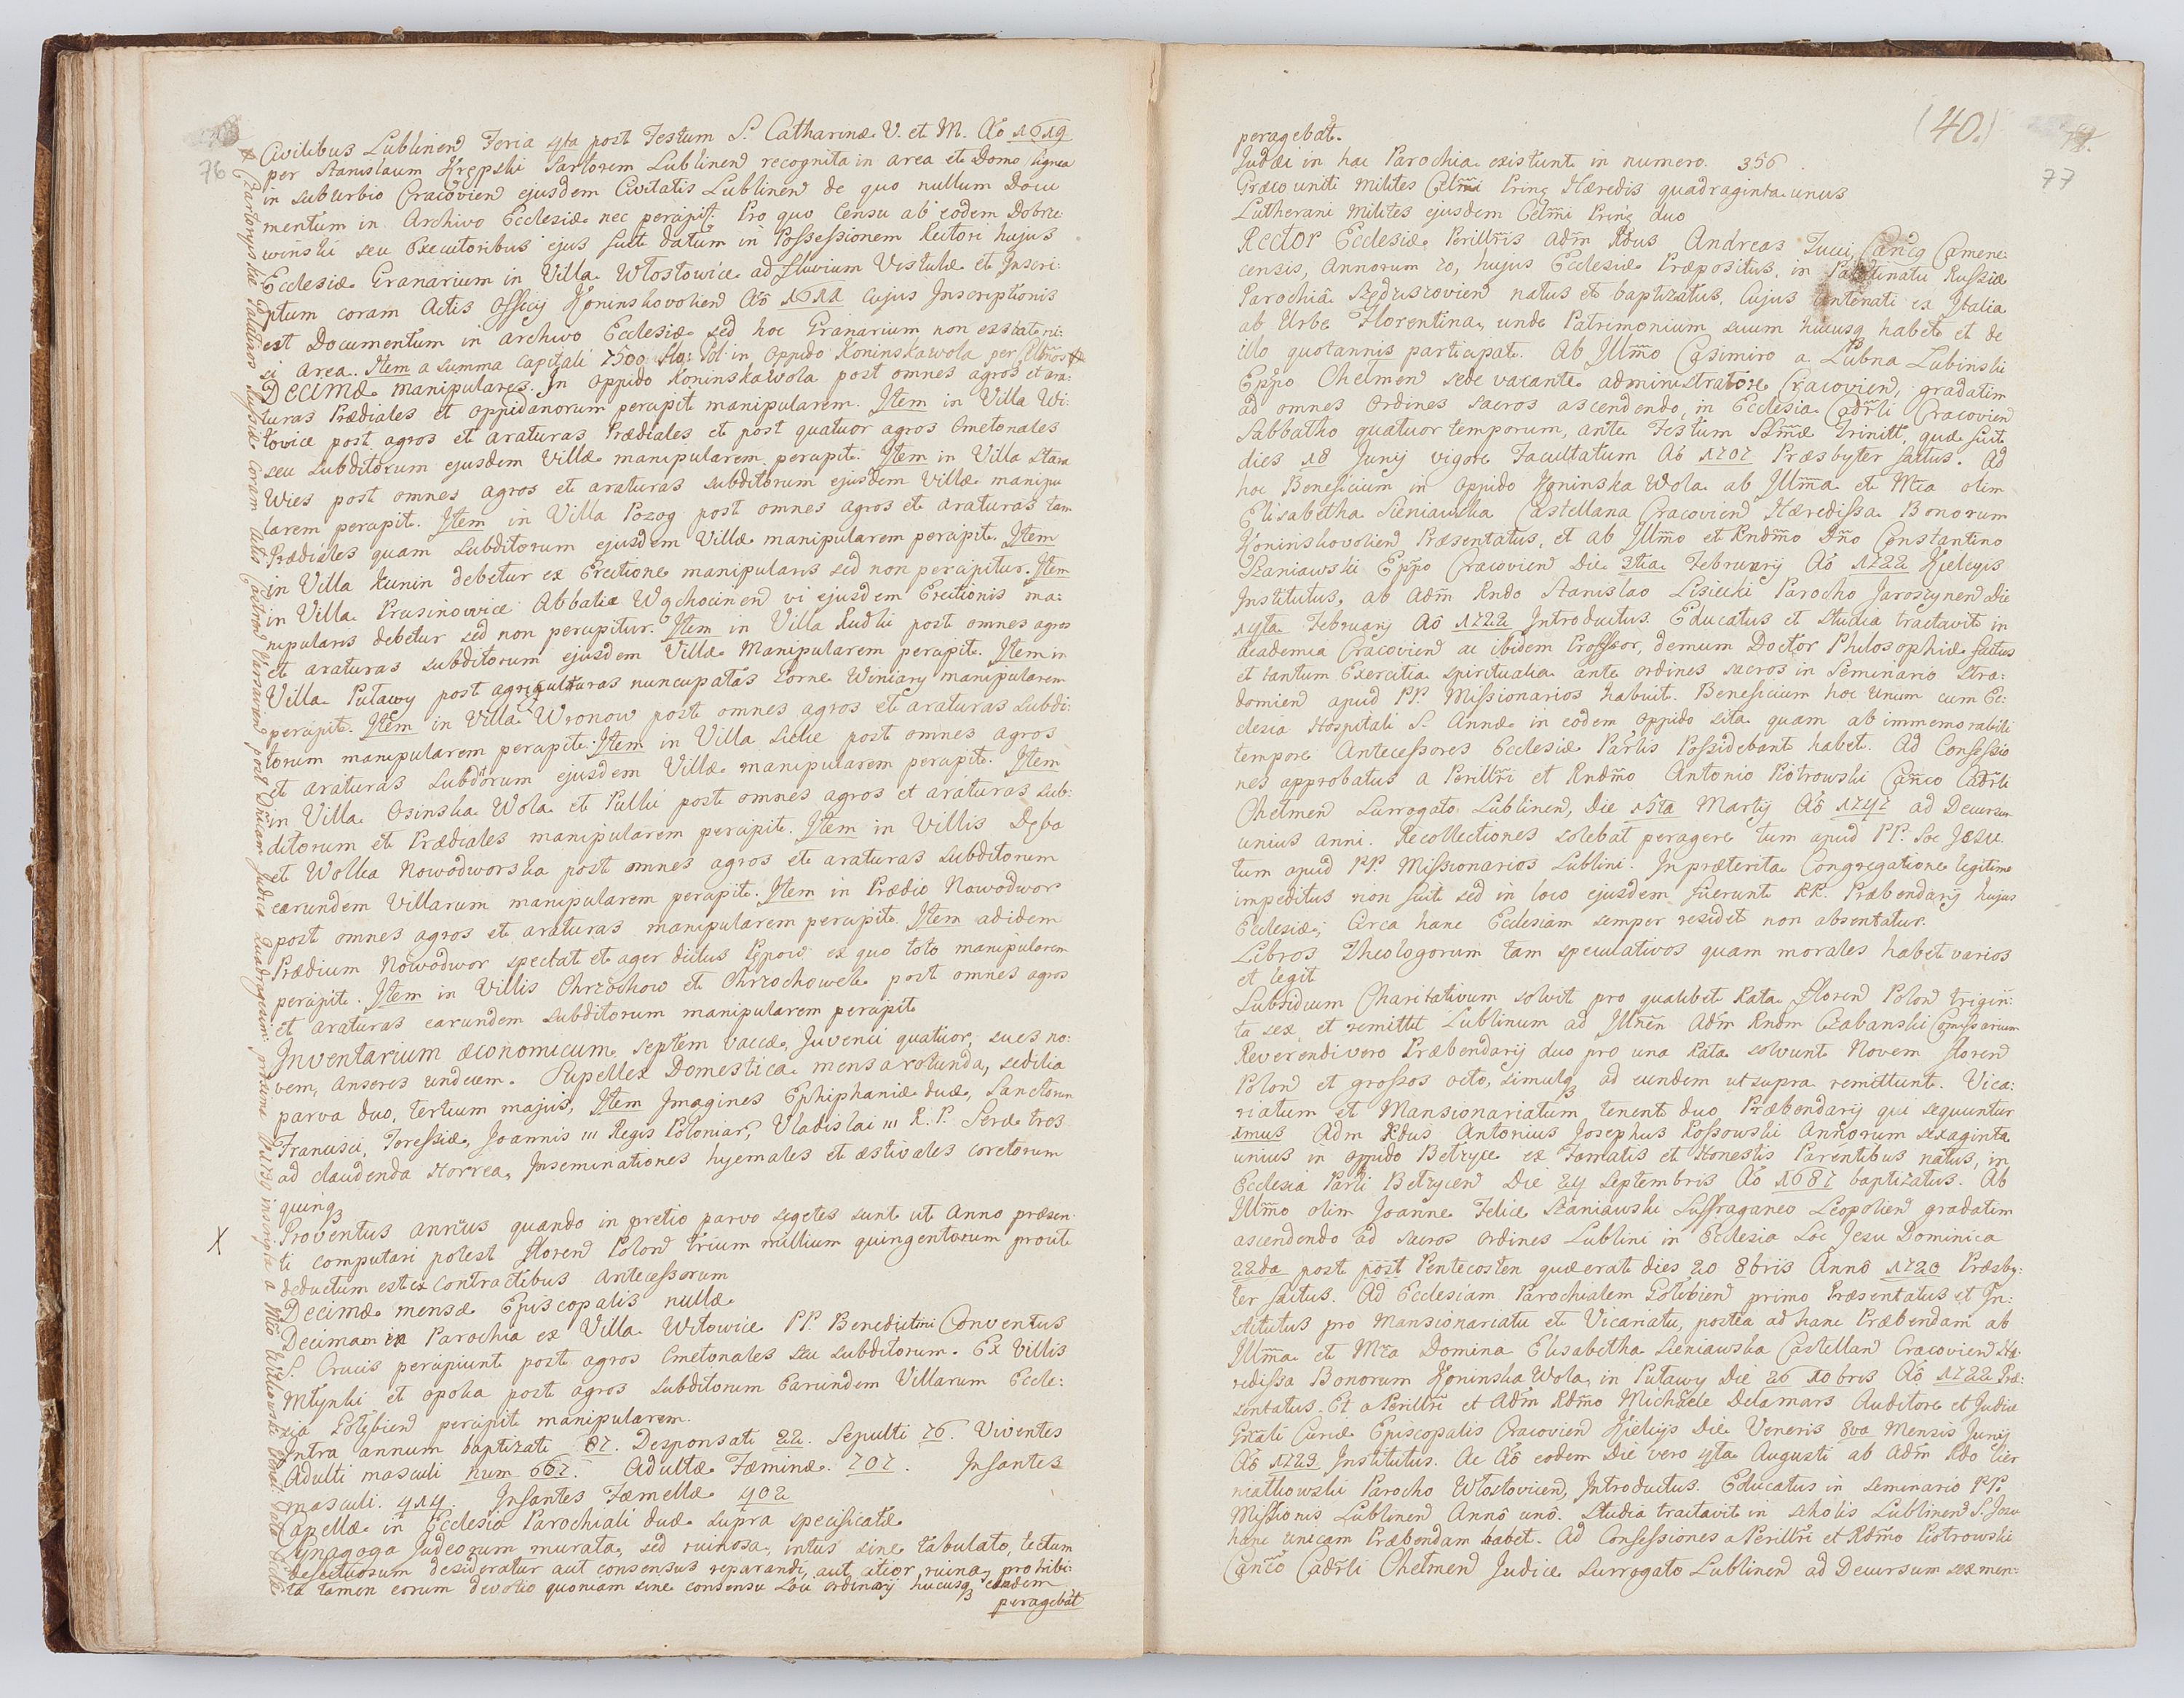 76
Civilibus Lublinen̄ Feria 4ta post Festum S. Catharinæ V. et M. Aõ 1619
per Stanislaum Krępski Sartorem Lublinen̄ recognita in area et Domo lignea
in suburbio Cracovien̄ ejusdem Civitatis Lublinen̄ de quo nullum Docu
mentum in Archivo Ecclesiæ nec percipit. Pro quo Censu ab eodem Dobrze:
winski seu Executoribus ejus fuit datum in Possessionem Rectori hujus
Ecclesiæ Granarium in Villa Włostowice ad fluvium Vistulæ et Inscri:
ptum coram Actis Officij Koninskovolien̄ Aõ 1622 cujus Inscriptionis
est Documentum in archivo Ecclesiæ sed hoc Granarium non exstat ni:
si area. Item a summa capitali 7500 flo: Pol: in Oppido Koninskawola per Cel̃mos
Decimæ manipulares. In Oppido Koninskawola post omnes agros et ara:
turas Prædiales et oppidanorum percipit manipularem. Item in Villa Wi:
towice post agros et araturas Prædiales et post quatuor agros Cmetonales
seu subditorum ejusdem Villæ manipularem percipit. Item in Villa Stara
Wies post omnes agros et araturas subditorum ejusdem Villæ manipu
larem percipit. Item in Villa Pozog post omnes agros et araturas tam
Prædiales quam subditorum ejusdem Villæ manipularem percipit. Item
in Villa Kunin debetur ex Erectione manipularis sed non percipitur. Item
in Villa Prusinowice Abbatiæ Wąchocinen̄ vi ejusdem Erectionis ma:
nipularis debetur sed non percipitur. Item in Villa Rudki post omnes agros
et araturas subditorum ejusdem Villæ Manipularem percipit. Item in
Villa Puławy post agriculturas nuncupatas Gorne Winiary manipularem
percipit. Item in Villa Wronow post omnes agros et araturas subdi:
torum manipularem percipit. Item in Villa Sielce post omnes agros
et araturas subditorum ejusdem Villæ manipularem percipit. Item
in Villa Osinska Wola et Pulki post omnes agros et araturas sub:
ditorum et Prædiales manipularem percipit. Item in Villis Dęba
et Wolka Nowodworska post omnes agros et araturas subditorum
earundem Villarum manipularem percipit. Item in Prædio Nowodwor
post omnes agros et araturas manipularem percipit. Item ad idem
Prædium Nowodwor spectat et ager dictus Kępow ex quo toto manipularem
percipit. Item in Villis Chrząchow et Chrzochowek post omnes agros
et araturas earundem subditorum manipularem percipit
Inventarium æconomicum septem vaccæ, Juvenci quatuor, sues no:
vem, anseres undecem. Supellex Domestica mensa rotunda, sedilia
parva duo, tertium majus, Item Imagines Ephiphaniæ duæ, Sanctorum
Francisci, Joannis III Regis Poloniar, Vladislai III R. P. Seræ tres
ad claudenda Horrea, Inseminationes hyemales et æstivales coretorum
quinq
X Proventus annuus quando in pretio parvo segetes sunt ut Anno præsen
ti computari potest floren̄ Polon̄ trium millium quingentorum prout
deductum est ex contractibus Antecessorum
Decimæ mensæ Episcopalis nullæ
Decimam in Parochia ex Villa Witowice PP. Benedictini Conventus
S. Crucis percipiunt post agros Cmetonales seu subditorum. Ex Villis
Młynki et Opoka post agros subditorum Earundem Villarum Eccle:
sia Gołębien̄ percipit manipularem.
Intra annum baptizati 87. Desponsati 22. Sepulti 76. Viventes
Adulti masculi num 667. Adultæ Fæminæ. 707. Infantes
masculi. 414. Infantes Fæmellæ 402
Capellæ in Ecclesia Parochiali duæ supra specificatæ
Synagoga Judeorum murata, sed ruinosa, intus sine tabulato, tectum
defectuosum desideratur aut consensus reparandi, aut citior ruina, prohibi:
ta tamen eorum devotio quoniam sine consensu Loci Ordinarij hucusq eandem
peragebat
Czartoryskie Palatinos Russiæ coram Actis Castren̄ Varsavien̄ post Dñicam Judica Quadragesimæ proxime Aõ 1739 inscripta a
(40.)
77
peragebat.
Judæi in hac Parochia existunt in numero. 356
Græco uniti milites Cel̃mi Princ Hæredis quadraginta unus
Lutherani Milites ejusdem Cel̃mi Princ duo
Rector Ecclesiæ Perillr̃is Adm̃ Rdus Andreas Fucci Can̄cg Camene:
censis, Annorum 70, hujus Ecclesiæ Præpositus, in Palatinatu Russiæ
Parochiâ Sędziszovien̄ natus et baptizatus, Cujus Antenati ex Italia
ab Urbe Florentina, unde Patrimonium suum hucusq habet et de
illo quotannis participat. Ab Illm̃o Casimiro a Łubna Łubinski
Epp̃o Chelmen̄ sede vacante administratore Cracovien̄, gradatim
ad omnes Ordines sacros ascendendo, in Ecclesia Cadr̃li Cracovien̄
Sabbatho quatuor temporum, ante Festum SSm̃æ Trinitt, quæ fuit
dies 18 Junij vigore Facultatum Aõ 1707 Præsbyter factus. Ad
hoc Beneficium in Oppido Koninska Wola ab Illm̃a et Mc̃a olim
Elisabetha Sieniawska Castellana Cracovien̄ Hæredissa Bonorum
Koninskovolien̄ Præsentatus, et ab Illm̃o et Rndm̃o Dño Constantino
Szaniawski Epp̃o Cracovien̄ Die 3tia Februarij Aõ 1722 Kielcijs
Institutus, ab Adm̃ Rndo Stanislao Lisiecki Parocho Jaroszynen̄ Die
14ta Februarij Aõ 1722 Introductus. Educatus et Studia tractavit in
Academia Cracovien̄ ac ibidem Professor, demum Doctor Philosophiæ factus
et tantum Exercitia spiritualia ante ordines sacros in Seminario Stra:
domien̄ apud PP. Missionarios habuit. Beneficium hoc Unum cum Ec:
clesia Hospitali S. Annæ in eodem Oppido sita quam ab immemorabili
tempore Antecessores Ecclesiæ Parlis Possidebant habet. Ad Confessio
nes approbatus a Perillr̃i et Rndm̃o Antonio Piotrowski Can̄co Cadr̃li
Chelmen̄ Surrogato Lublinen̄, Die 15ta Martij Aõ 1747 ad Decursum
unius anni. Recollectiones solebat peragere tum apud PP. Soc Jesu.
tum apud PP. Missionarios Lublini. In præterita Congregatione legitime
impeditus non fuit sed in loco ejusdem fuerunt RR. Præbendarij hujus
Ecclesiæ; Circa hanc Ecclesiam semper residet non absentatur.
Libros Theologorum tam speculativos quam morales habet varios
et legit
Subsidium Charitativum solvit pro qualibet Rata Floren̄ Polon̄ trigin:
ta sex et remittit Lublinum ad Adm̃ Rndm Czabanski Comissarium
Reverendi vero Præbendarij duo pro una Rata solvunt Novem floren̄
Polon̄ et grossos octo, simulq ad eundem ut supra remittunt. Vica:
riatum et Mansionariatum tenent duo Præbendarij qui sequuntur
1mus Adm Rdus Antonius Josephus Rossowski Annorum sexaginta
unius in oppido Bełzyce ex Famatis et Honestis Parentibus natus, in
Ecclesia Parli Bełzycen̄ Die 24 Septembris Aõ 1687 baptizatus. Ab
Illm̃o olim Joanne Felice Szaniawski Suffraganeo Leopolien̄ gradatim
ascendendo ad sacros Ordines Lublini in Ecclesia Soc Jesu Dominica
22da post post Pentecosten quæ erat dies 20 8bris Annô 1720 Præsby:
ter factus. Ad Ecclesiam Parochialem Gołębien̄ primo Præsentatus et In:
stitutus pro Mansionariatu et Vicariatu, postea ad hanc Præbendam ab
Illm̃a et Mc̃a Domina Elisabetha Sieniawska Castellan̄ Cracovien̄ Hæ:
redissa Bonorum Koninska Wola, in Puławy Die 26 10bris Aõ 1722 Præ:
sentatus. Et a Perillr̃i et Adm̃ Rdm̃o Michaele Delamars Auditore et Judice
Gn̄ali Curiæ Episcopalis Cracovien̄ Kielcijs Die Veneris 8va Mensis Junij
Aõ 1723 Institutus. Ac Aõ eodem Die vero 4ta Augusti ab Adm̃ Rdo Cier
niathowski Parocho Włostovicen̄, Introductus. Educatus in Seminario PP.
Missionis Lublinen̄ Annô unô. Studia tractavit in Scholis Lublinen̄ S. Jesu
hanc unicam Præbendam habet. Ad Confessiones a Perillr̃i et Rdm̃o Piotrowski
Can̄co Cadr̃li Chelmen̄ Judice Surrogato Lublinen̄ ad Decursum sex men: